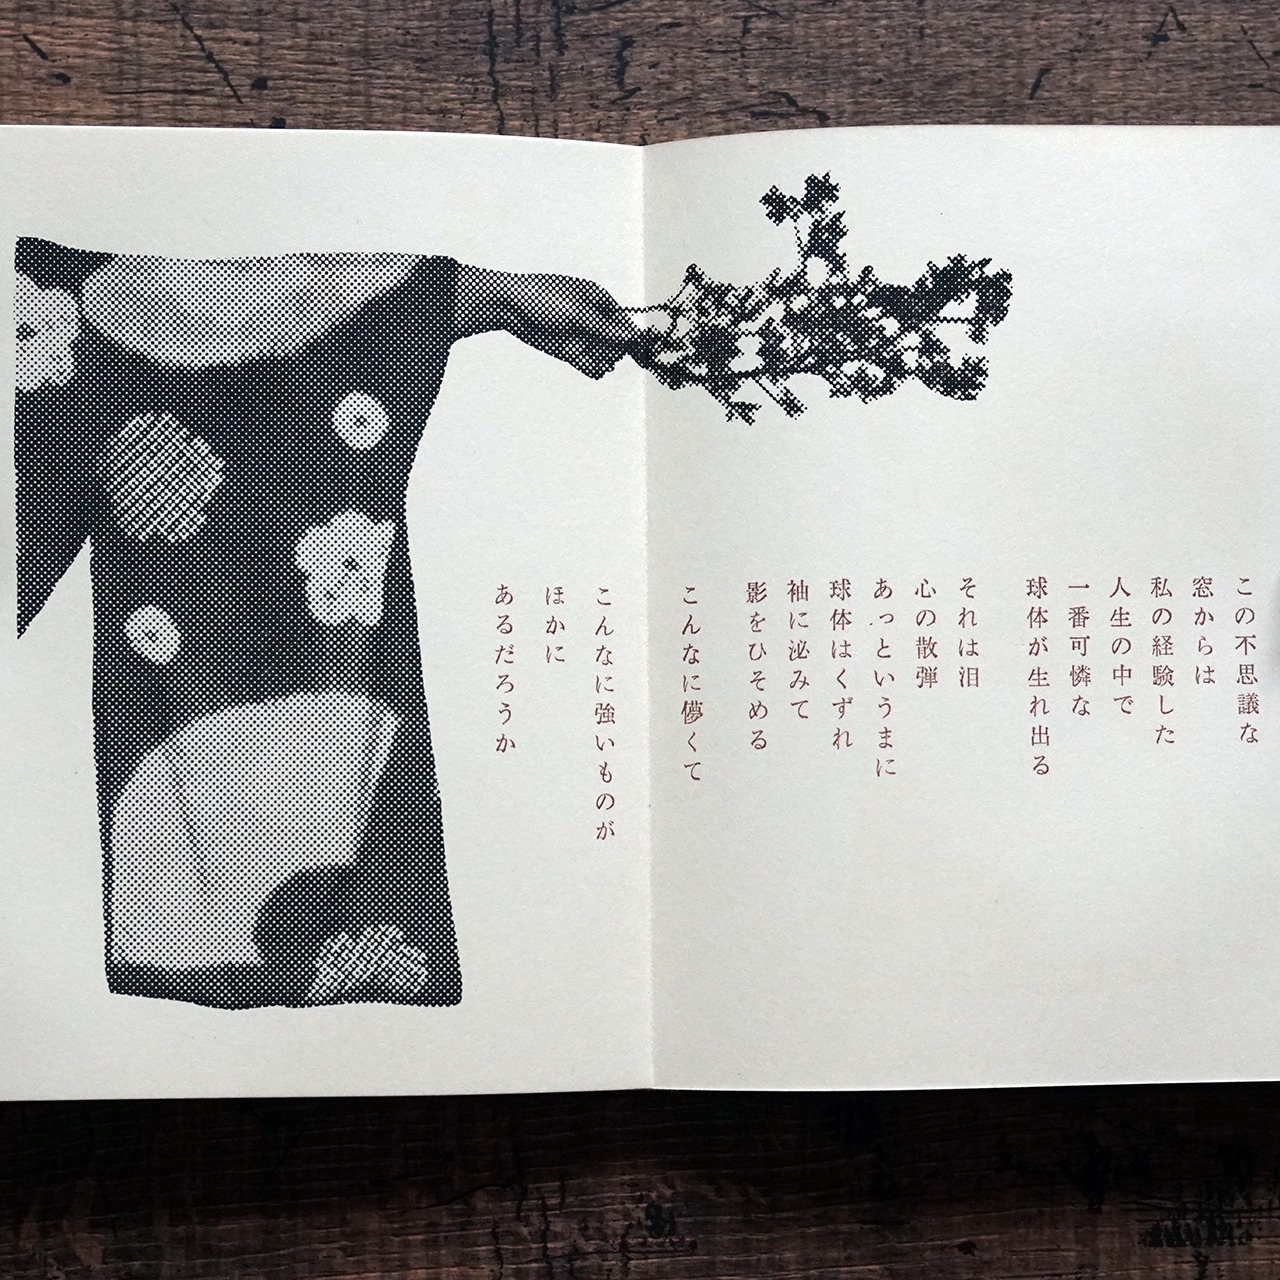 この不思議な
窓からは
私の経験した
人生の中で
一番可憐な
球体が生れ出る
それは泪
心の散弾
あっというまに
球体はくずれ
袖に泌みて
影をひそめる
こんなに儚くて
こんなに強いものが
ほかに
あるだろうか